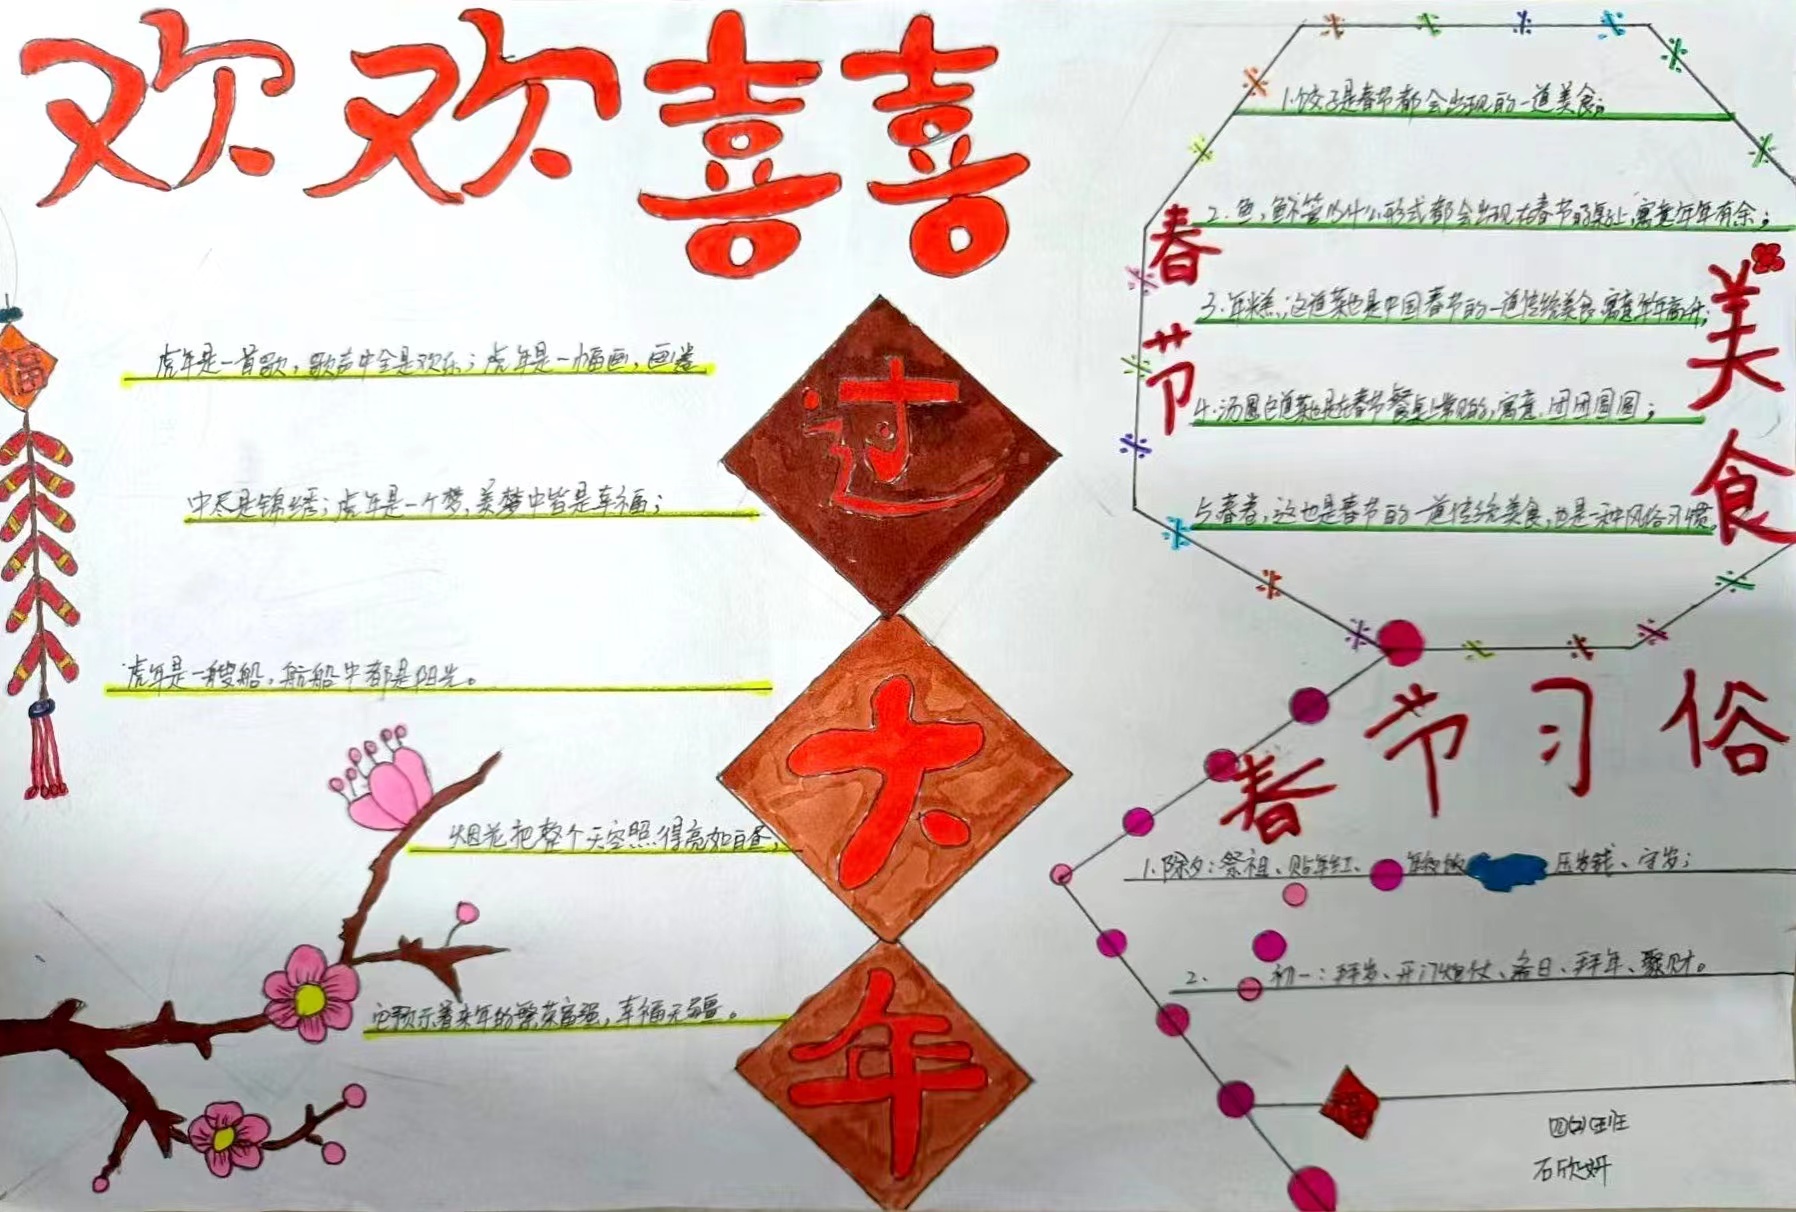 欢欢喜喜
过大年
福
虎年是一首歌，歌声中全是欢乐；虎年是一幅画，画卷
中尽是锦绣；虎年是一个梦，美梦中皆是幸福；
虎年是一艘船，航船中都是阳光。
烟花把整个天空照得亮如白昼，
它预示着来年的繁荣富强，幸福无疆。
春节美食
1.饺子是春节都会出现的一道美食；
2.鱼，无论以什么形式都会出现在春节的桌上，寓意年年有余；
3.年糕，这道菜也是中国春节的一道传统美食，寓意年年高升；
4.汤圆它道菜也是在春节餐桌上常见的，寓意团团圆圆；
5春卷，这也是春节的一道传统美食，也是一种风俗习惯。
春节习俗
1.除夕：祭祖、贴年红、年夜饭 压岁钱、守岁；
2.初一：拜岁、开门炮仗、拜年、聚财。
班
石欣妍